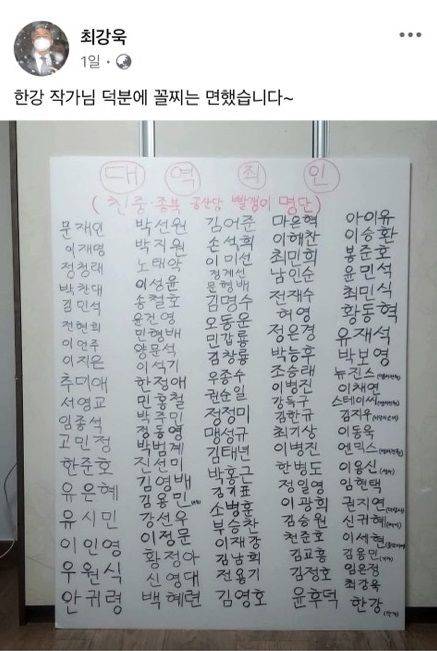 최강욱
1일
한강 작가님 덕분에 꼴찌는 면했습니다~
대 역 죄 인
(친중·종북 공산당 빨갱이 명단)
문재인
이재명
정청래
박찬대
김민석
전현희
이언주
이지은
추미애
서영교
임종석
고민정
한준호
유은혜
유시민
이인영
우원식
안귀령
박선원
박지원
노태악
이성윤
송철호
윤건영
민형배
양문석
이석기
한정애
민홍철
박주민
정동영
박범계
진선미
김영배
김용민
강선우
이정문
황정아
신영대
백혜련
김어준
손석희
이미선
정계선
문형배
김명수
오동운
민갑룡
김창룡
우종수
권순일
정정미
맹성규
김태년
박홍근
김기표
소병훈
부승찬
이재강
김남희
전용기
김영호
마은혁
이해찬
최민희
남인순
전재수
허영
정은경
박능후
조승래
이병진
강득구
김한규
최기상
이병진
한병도
정일영
이광희
김승원
천준호
김교흥
김정호
윤후덕
아이유
이승환
봉준호
윤민석
최민식
황동혁
유재석
박보영
뉴진스(멤버전원)
이채연
스테이씨(멤버전원)
김지우
이동욱
엔믹스(멤버전원)
임현택
권지연
신귀혜(기자)
이세현
김용민
임은정
최강욱
한강(작가)